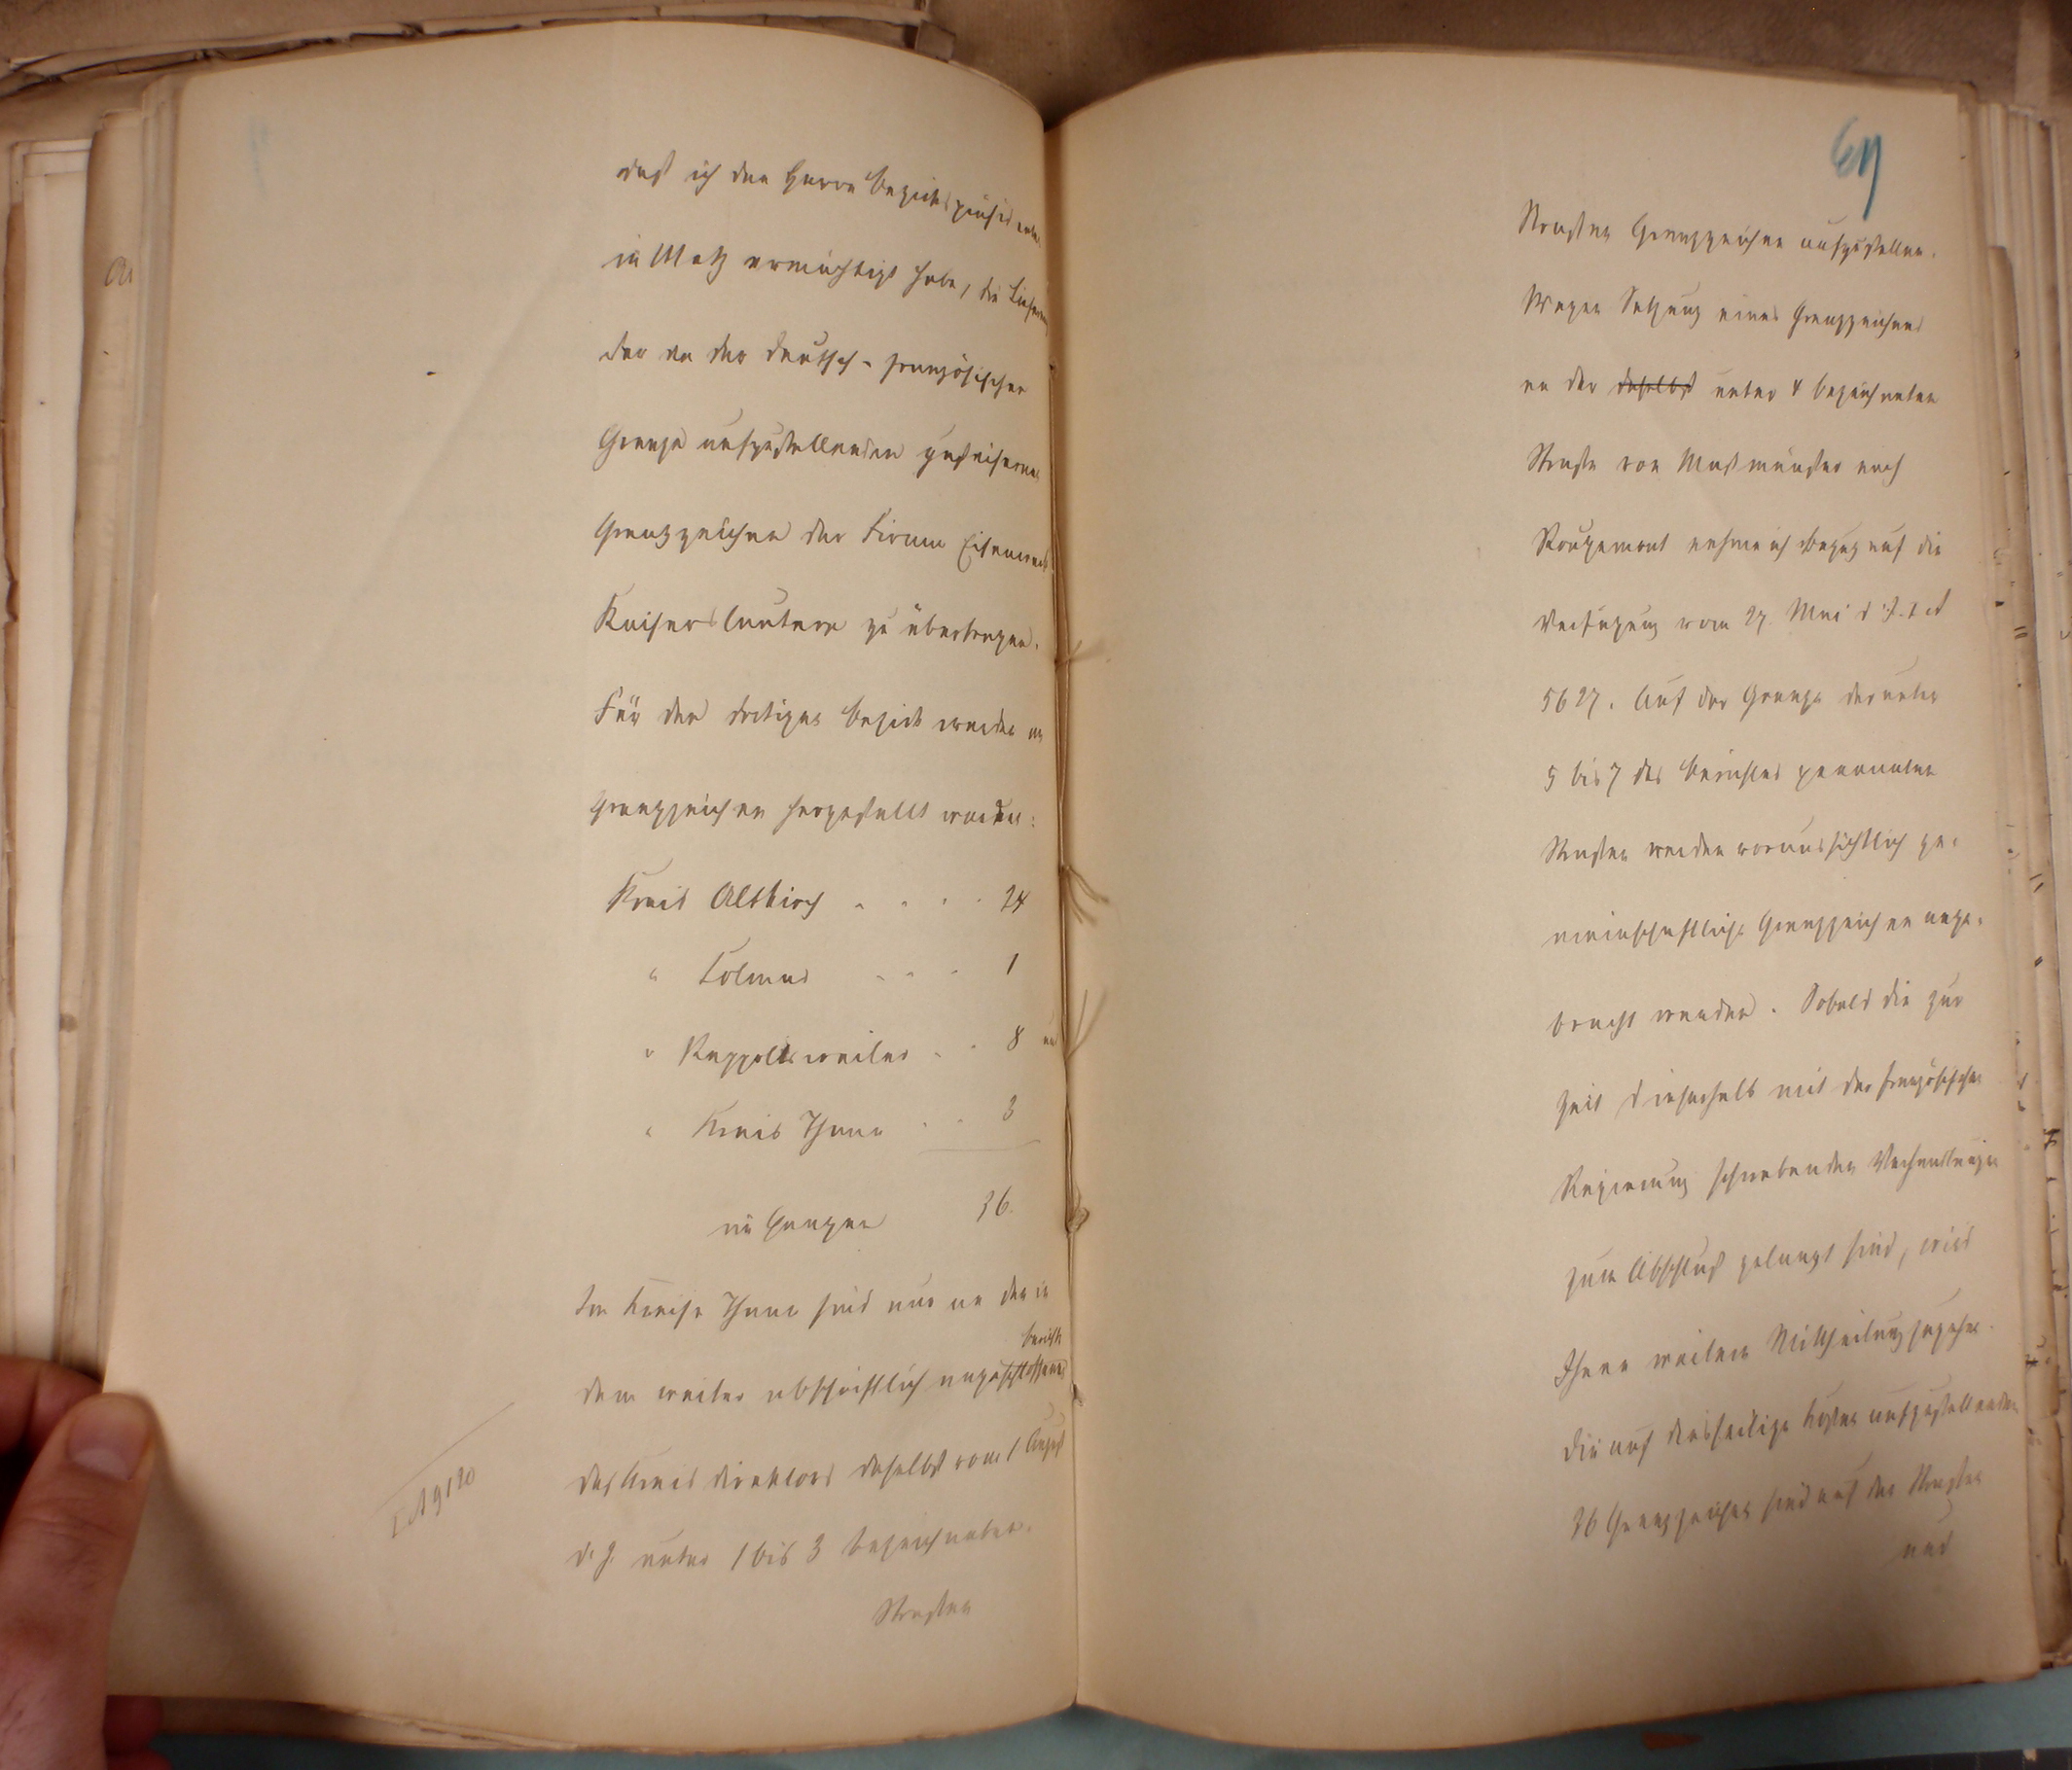 daß ich den Herrn Bezirkspräsidenten
in Metz ermächtigt habe, die Lieferung
der an der deutsch-französischen
Grenze aufzustellenden gußeisernen
Grenzzeichen der Firma Eisenwerk
Kaiserslautern zu übertragen.
Für den dortigen Bezirk werden an
Grenzzeichen hergestellt werden:
Kreis Altkirch . . . . 24
" Colmar . . . 1
" Rappoltsweiler . . 8 und
" Kreis Thann . . 3
im Ganzen 36.
Im Kreise Thann sind nur an den in
Bericht
dem weiter abschriftlich angeschlossenen
des Kreisdirektors daselbst vom 1 August
d. J. unter 1 bis 3 bezeichneten
Straßen
I A 9120
67
Straßen Grenzzeichen aufzustellen.
Wegen Setzung eines Grenzzeichens
an der daselbst unter 4 bezeichneten
Straße von Maßmünster nach
Rougemont nehme ich Bezug auf die
Verfügung vom 27. Mai d. J. I A
5627. Auf der Grenze der unter
5 bis 7 des Berichtes genannten
Straßen werden voraussichtlich ge-
meinschaftliche Grenzzeichen ange-
bracht werden. Sobald die zur
Zeit dieserhalb mit der französischen
Regierung schwebenden Verhandlungen
zum Abschluß gelangt sind, wird
Ihnen weitere Mittheilung zugehen.
Die auf diesseitige Kosten aufzustellenden
36 Grenzzeichen sind auf den Straßen
und